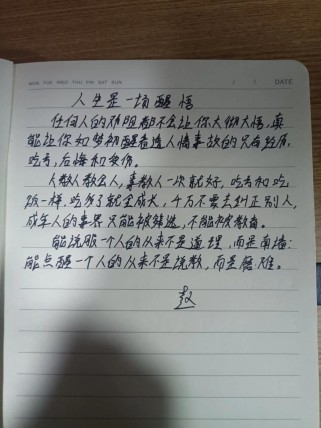 MON TUE WED THU FRI SAT SUN
DATE
人生是一场醒悟
任何人的功课都不会让你大彻大悟,真
能让你如梦初醒看透人情事故的只有经历,
吃亏,后悔和失信。
人教人教不会,事教人一次就好,吃亏和吃
饭一样,吃多了就会成长,千万不要去纠正别人,
成年人的世界只能被筛选,不能被教育。
能说服一个人的从来不是道理,而是南墙;
能点醒一个人的从来不是说教,而是磨难。